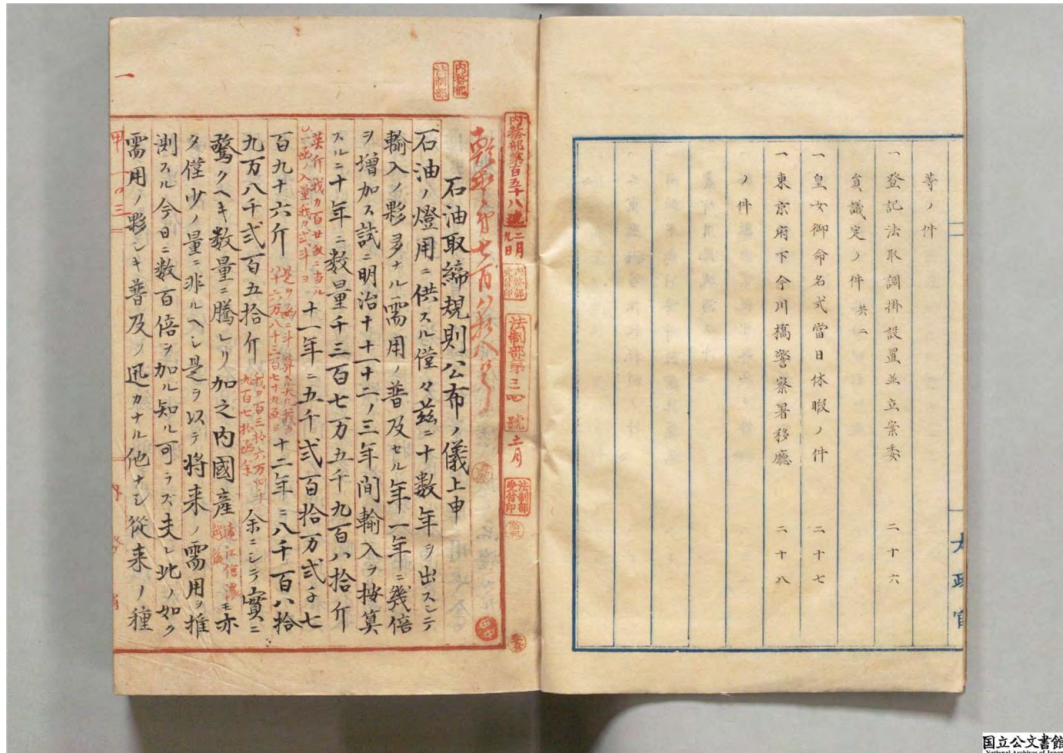 等ノ件
一登記法取調掛設置並立案委 二十六
員議定ノ件 共二
一皇女御命名式當日休暇ノ件 二十七
一東京府下今川橋警察署移廳 二十八
ノ件
太政官
内務部第百五十八號 二月九日
法制部第三四號 二月
法制部受付印
内務部
法制部
石油取締規則公布ノ儀上申
石油ノ燈用ニ供スル僅々茲ニ十数年ヲ出スシテ
輸入ノ夥多ナル需用ノ普及セル年一年ニ幾倍
ヲ増加ス試ニ明治十十一十二ノ三年間輸入ヲ按算
スルニ十年ニ数量千三百七万五千九百八拾斤
英斤我カ百廿匁ニ当ル
十一年ニ五千弐百拾万弐千七
百九十六斤
十二年ニ八千百八拾
九万八千弐百五拾斤
余ニシテ實ニ
驚クヘキ数量ニ騰レリ加之内國産
遠江信濃
越後
モ亦
タ僅少ノ量ニ非ルヘシ是ヲ以テ将来ノ需用ヲ推
測スル今日ニ数百倍ヲ加ル知ル可ラス夫レ此ノ如ク
需用ノ夥シキ普及ノ迅カナル他ナシ從来ノ種
一
国立公文書館
National Archives of Japan